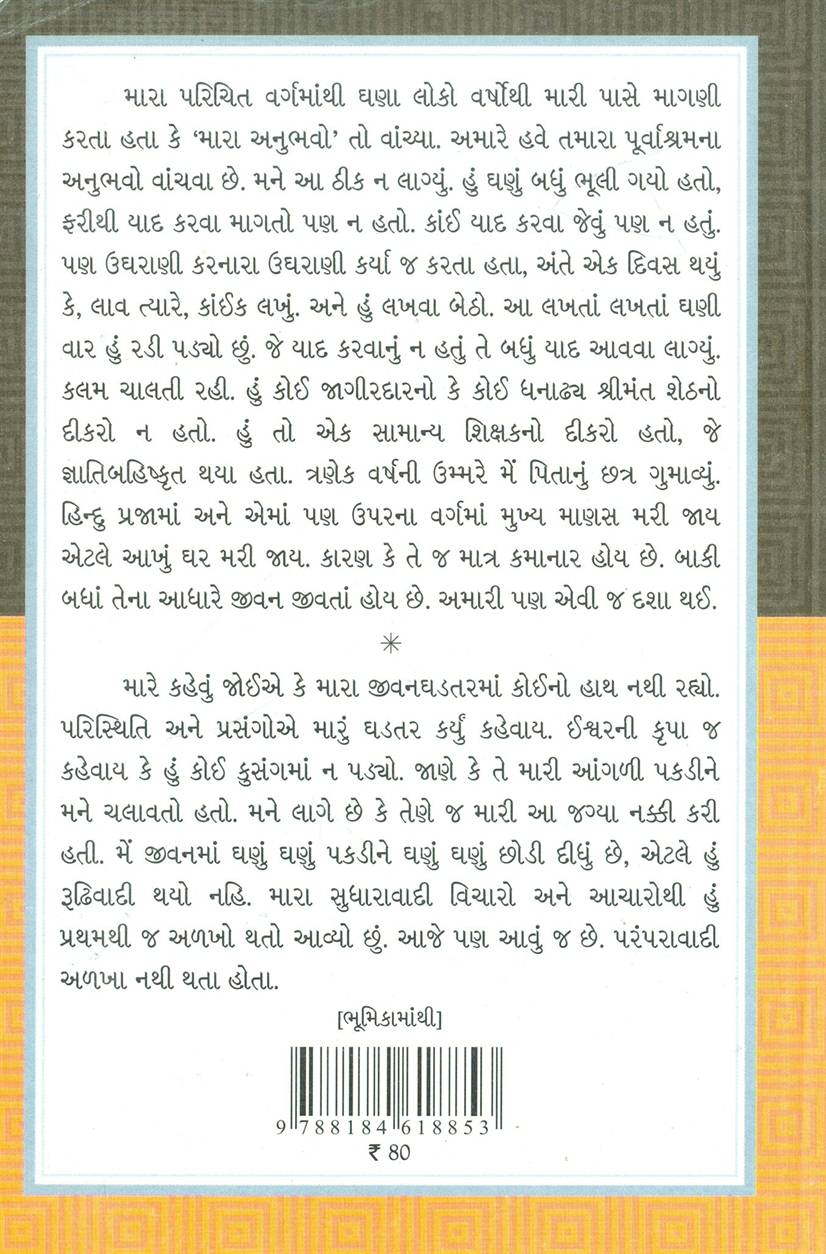 મારા પરિચિત વર્ગમાંથી ઘણા લોકો વર્ષોથી મારી પાસે માગણી
કરતા હતા કે ‘મારા અનુભવો’ તો વાંચ્યા. અમારે હવે તમારા પૂર્વાશ્રમના
અનુભવો વાંચવા છે. મને આ ઠીક ન લાગ્યું. હું ઘણું બધું ભૂલી ગયો હતો,
ફરીથી યાદ કરવા માગતો પણ ન હતો. કાંઈ યાદ કરવા જેવું પણ ન હતું.
પણ ઉઘરાણી કરનારા ઉઘરાણી કર્યા જ કરતા હતા, અંતે એક દિવસ થયું
કે, લાવ ત્યારે, કાંઈક લખું. અને હું લખવા બેઠો. આ લખતાં લખતાં ઘણી
વાર હું રડી પડ્યો છું. જે યાદ કરવાનું ન હતું તે બધું યાદ આવવા લાગ્યું.
કલમ ચાલતી રહી. હું કોઈ જાગીરદારનો કે કોઈ ધનાઢ્ય શ્રીમંત શેઠનો
દીકરો ન હતો. હું તો એક સામાન્ય શિક્ષકનો દીકરો હતો, જે
જ્ઞાતિબહિષ્કૃત થયા હતા. ત્રણેક વર્ષની ઉમ્મરે મેં પિતાનું છત્ર ગુમાવ્યું.
હિન્દુ પ્રજામાં અને એમાં પણ ઉપરના વર્ગમાં મુખ્ય માણસ મરી જાય
એટલે આખું ઘર મરી જાય. કારણ કે તે જ માત્ર કમાનાર હોય છે. બાકી
બધાં તેના આધારે જીવન જીવતાં હોય છે. અમારી પણ એવી જ દશા થઈ.
✳
મારે કહેવું જોઈએ કે મારા જીવનઘડતરમાં કોઈનો હાથ નથી રહ્યો.
પરિસ્થિતિ અને પ્રસંગોએ મારું ઘડતર કર્યું કહેવાય. ઈશ્વરની કૃપા જ
કહેવાય કે હું કોઈ કુસંગમાં ન પડ્યો. જાણે કે તે મારી આંગળી પકડીને
મને ચલાવતો હતો. મને લાગે છે કે તેણે જ મારી આ જગ્યા નક્કી કરી
હતી. મેં જીવનમાં ઘણું ઘણું પકડીને ઘણું ઘણું છોડી દીધું છે, એટલે હું
રૂઢિવાદી થયો નહિ. મારા સુધારાવાદી વિચારો અને આચારોથી હું
પ્રથમથી જ અળખો થતો આવ્યો છું. આજે પણ આવું જ છે. પરંપરાવાદી
અળખા નથી થતા હોતા.
[ભૂમિકામાંથી]
9 788184 618853
₹ 80